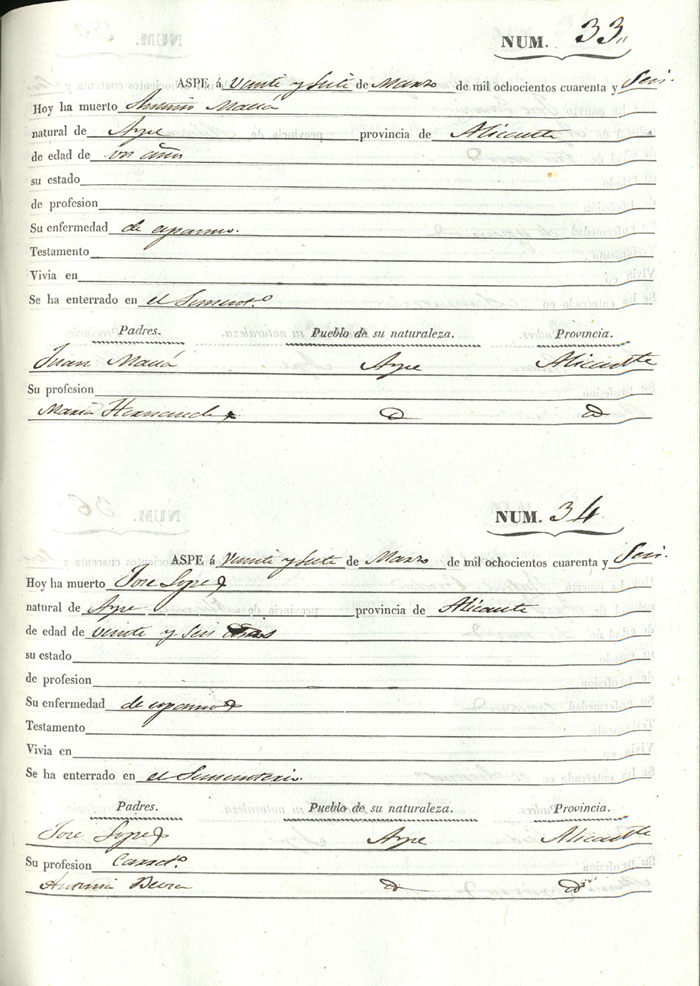 NUM. 33
ASPE á Veinte y siete de Marzo de mil ochocientos cuarenta y Seis.
Hoy ha muerto Antonio
natural de Aspe provincia de Alicante
de edad de un año
su estado
de profesion
Su enfermedad de espasmo.
Testamento
Vivia en
Se ha enterrado en el
Padres. Pueblo de su naturaleza. Provincia.
Juan Aspe Alicante
Su profesion
Maria Hernandez
NUM. 34
ASPE á Veinte y siete de Marzo de mil ochocientos cuarenta y Seis.
Hoy ha muerto Jose Lopez
natural de Aspe provincia de Alicante
de edad de veinte y seis
su estado
de profesion
Su enfermedad de espasmo
Testamento
Vivia en
Se ha enterrado en el Sementerio.
Padres. Pueblo de su naturaleza. Provincia.
Jose Lopez Aspe Alicante
Su profesion
Antonia